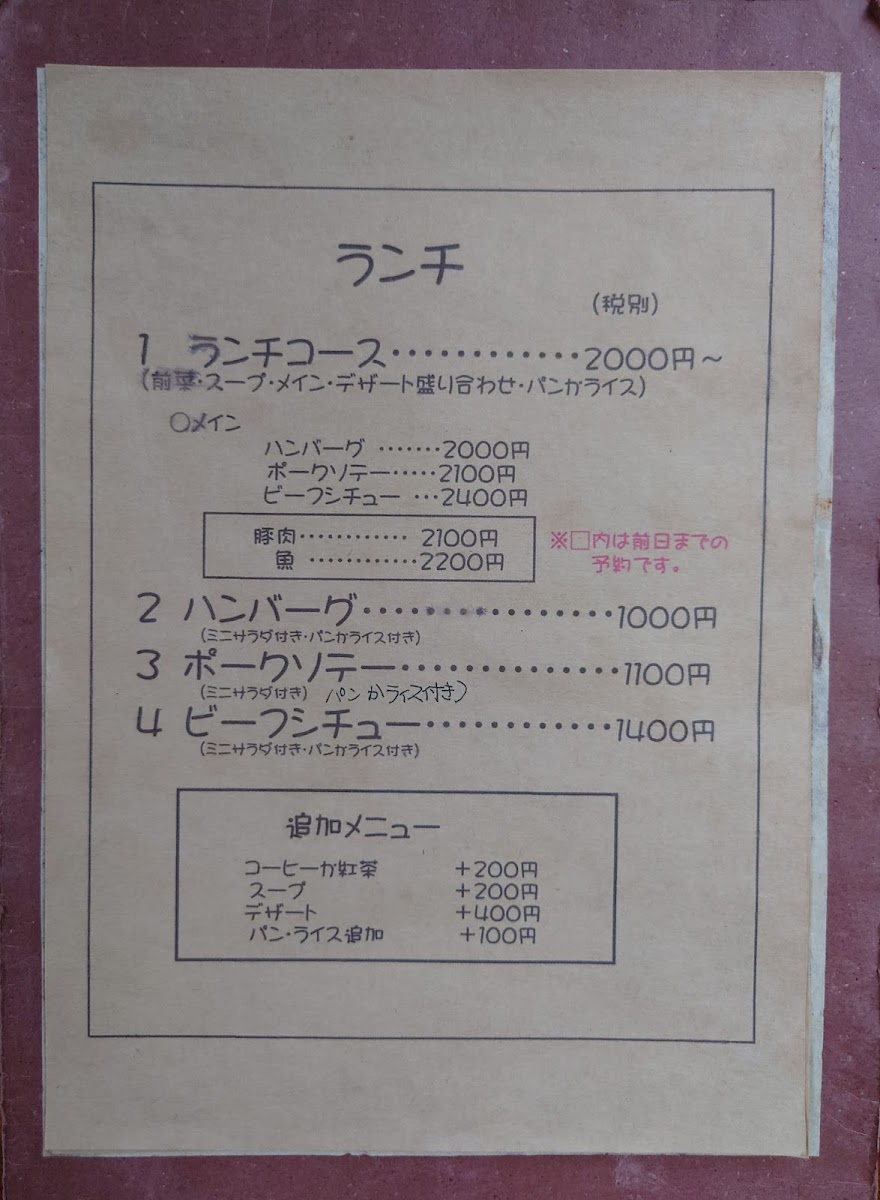 ランチ
(税別)
1 ランチコース・・・・・・・・・・・・2000円～
(前菜・スープ・メイン・デザート盛り合わせ・パンかライス)
○メイン
ハンバーグ ・・・・・・・2000円
ポークソテー・・・・・2100円
ビーフシチュー ・・・2400円
豚肉・・・・・・・・・・・・ 2100円
魚 ・・・・・・・・・・・・2200円
※□内は前日までの
予約です。
2 ハンバーグ・・・・・・・・・・・・・・1000円
(ミニサラダ付き・パンかライス付き)
3 ポークソテー・・・・・・・・・・・・1100円
(ミニサラダ付き) パンかライス付き)
4 ビーフシチュー・・・・・・・・・・・1400円
(ミニサラダ付き・パンかライス付き)
追加メニュー
コーヒーか紅茶 +200円
スープ +200円
デザート +400円
パン・ライス追加 +100円